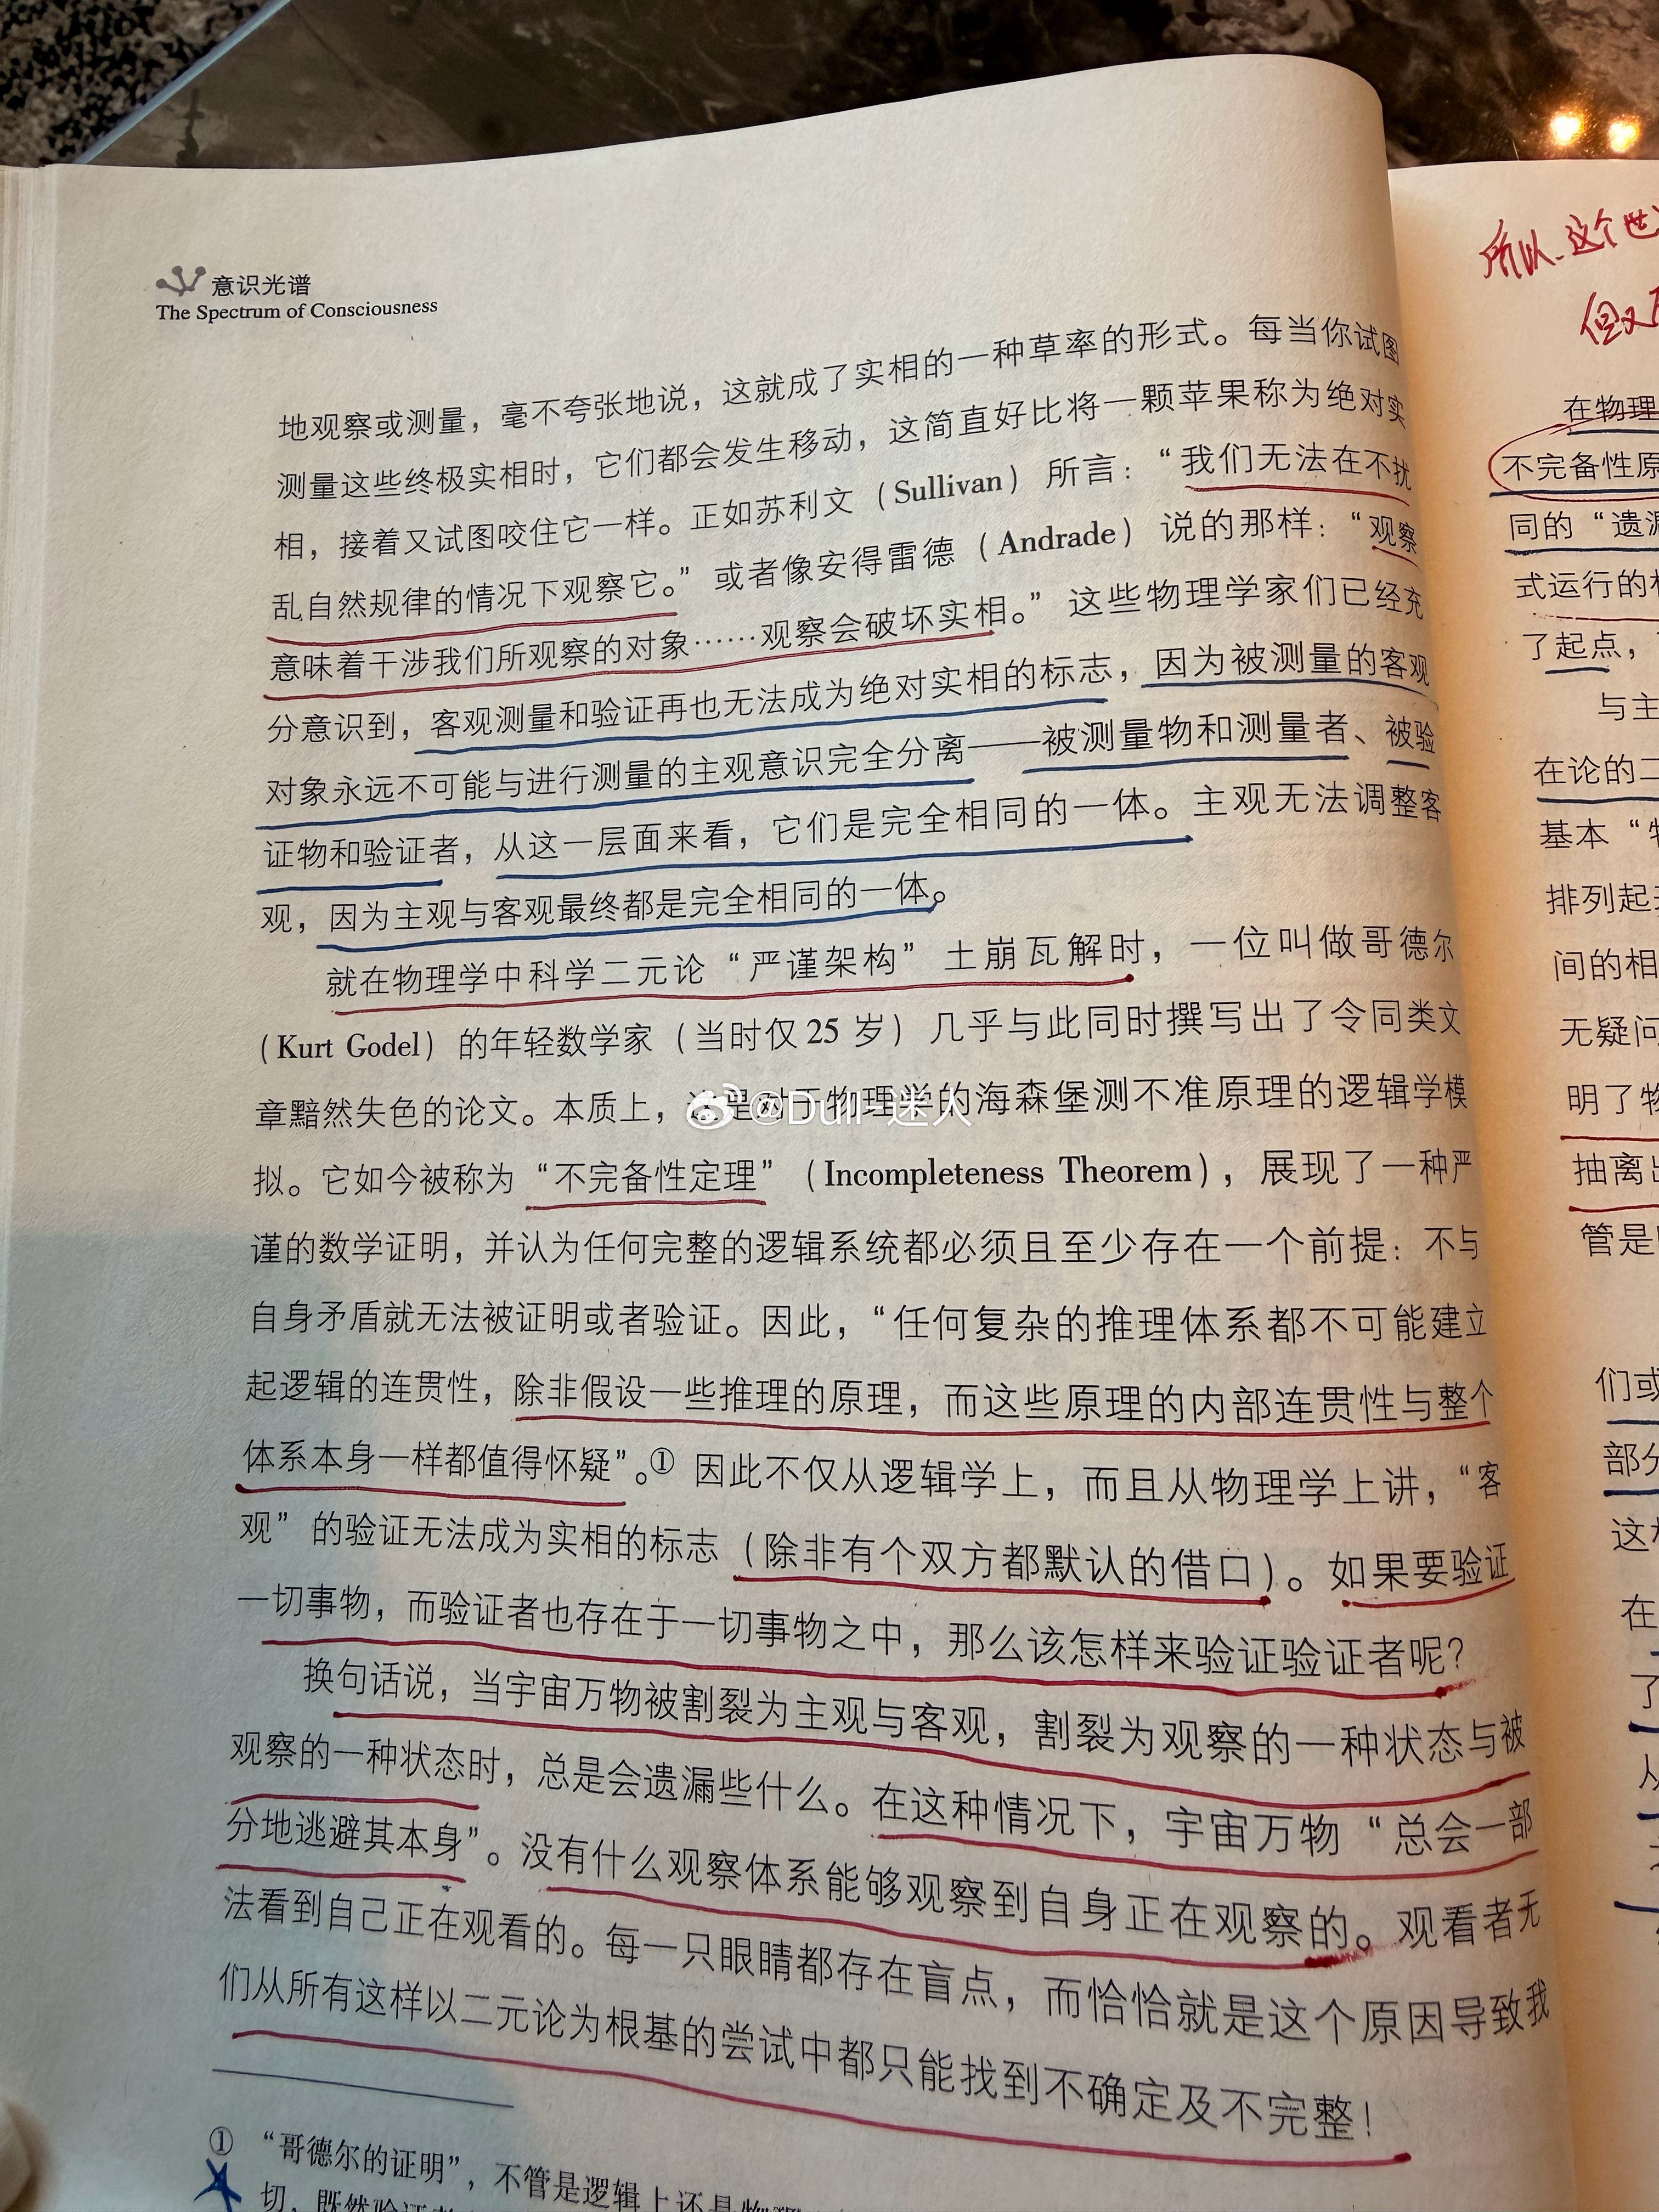 意识光谱
The Spectrum of Consciousness
地观察或测量，毫不夸张地说，这就成了实相的一种草率的形式。每当你试图
测量这些终极实相时，它们都会发生移动，这简直好比将一颗苹果称为绝对实
相，接着又试图咬住它一样。正如苏利文（Sullivan）所言：“我们无法在不扰
乱自然规律的情况下观察它。”或者像安得雷德（Andrade）说的那样：“观察
意味着干涉我们所观察的对象……观察会破坏实相。”这些物理学家们已经充
分意识到，客观测量和验证再也无法成为绝对实相的标志，因为被测量的客观
对象永远不可能与进行测量的主观意识完全分离——被测量物和测量者、被验
证物和验证者，从这一层面来看，它们是完全相同的一体。主观无法调整客
观，因为主观与客观最终都是完全相同的一体。
就在物理学中科学二元论“严谨架构”土崩瓦解时，一位叫做哥德尔
（Kurt Godel）的年轻数学家（当时仅25岁）几乎与此同时撰写出了令同类文
章黯然失色的论文。本质上，这是对于物理学的海森堡测不准原理的逻辑学模
拟。它如今被称为“不完备性定理”（Incompleteness Theorem），展现了一种严
谨的数学证明，并认为任何完整的逻辑系统都必须且至少存在一个前提：不与
自身矛盾就无法被证明或者验证。因此，“任何复杂的推理体系都不可能建立
起逻辑的连贯性，除非假设一些推理的原理，而这些原理的内部连贯性与整个
体系本身一样都值得怀疑”。① 因此不仅从逻辑学上，而且从物理学上讲，“客
观”的验证无法成为实相的标志（除非有个双方都默认的借口）。如果要验证
一切事物，而验证者也存在于一切事物之中，那么该怎样来验证验证者呢？
换句话说，当宇宙万物被割裂为主观与客观，割裂为观察的一种状态与被
观察的一种状态时，总是会遗漏些什么。在这种情况下，宇宙万物“总会一部
分地逃避其本身”。没有什么观察体系能够观察到自身正在观察的。观看者无
法看到自己正在观看的。每一只眼睛都存在盲点，而恰恰就是这个原因导致我
们从所有这样以二元论为根基的尝试中都只能找到不确定及不完整！
① “哥德尔的证明”，不管是逻辑上还是
@Dull-迷人
所以、这个世
但又
在物理
不完备性原
同的“遗漏
式运行的
了起点，
与主
在论的二
基本“
排列起
间的相
无疑问
明了物
抽离出
管是
们或
部分
这
在
了
从